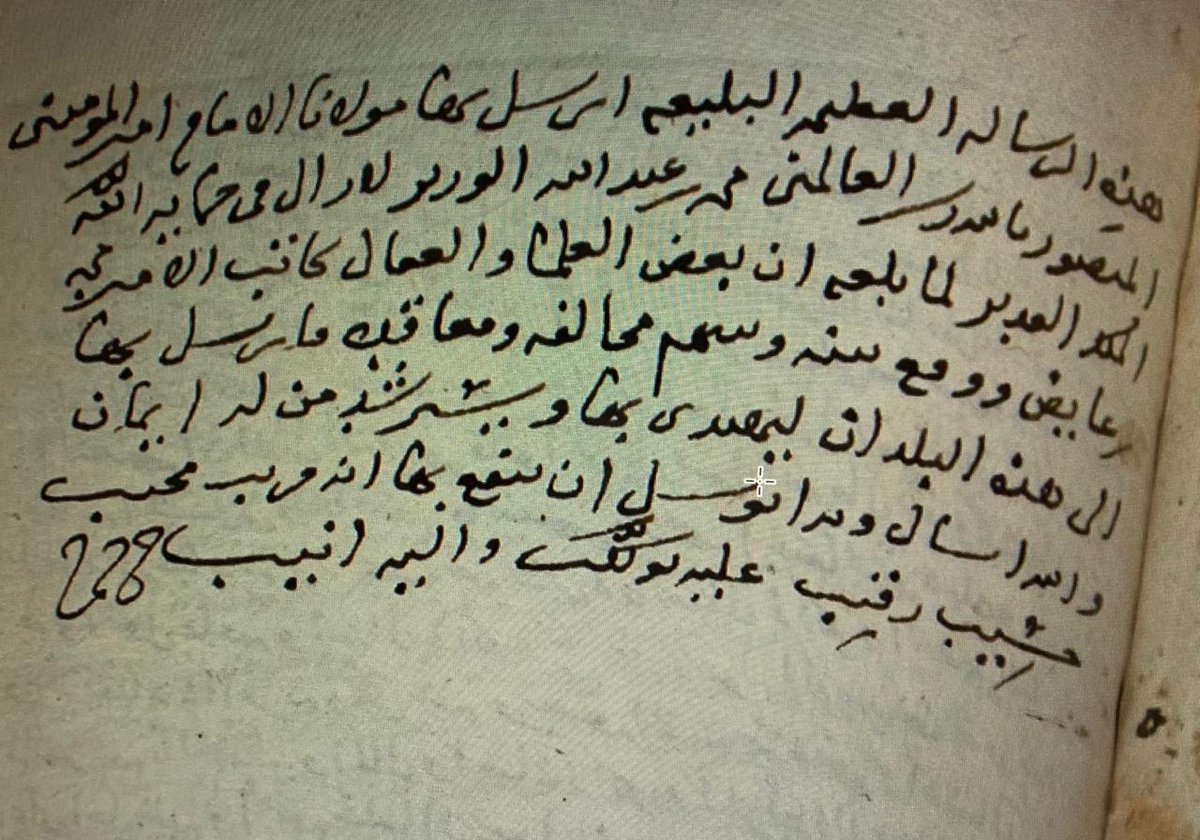 هذه الرساله العظيمه البليغه ارسل بها مولانا الامام امير المومنين
المنصور بالله رب العالمين محمد بن عبد الله الوزير لا زال في حمايه الله
الملك القدير لما بلغه ان بعض العلما والعمال كاتب الامير
ووقع بينه وبينهم مخالفه فارسل بها
الى هذه البلدان ليهتدى بها ويسترشد من له ايمان
والله اسال وبه اتوسل ان ينفع بها انه قريب مجيب
حسيب رقيب عليه توكلت واليه انيب